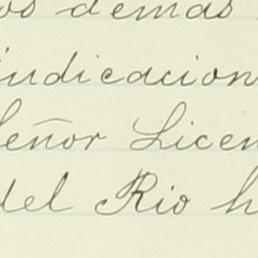 os demás
indicacion
Señor Licen
del Rio h